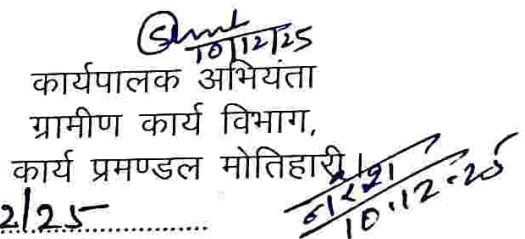 10/12/25
कार्यपालक अभियंता
ग्रामीण कार्य विभाग,
कार्य प्रमण्डल मोतिहारी।
2/25
10.12.25